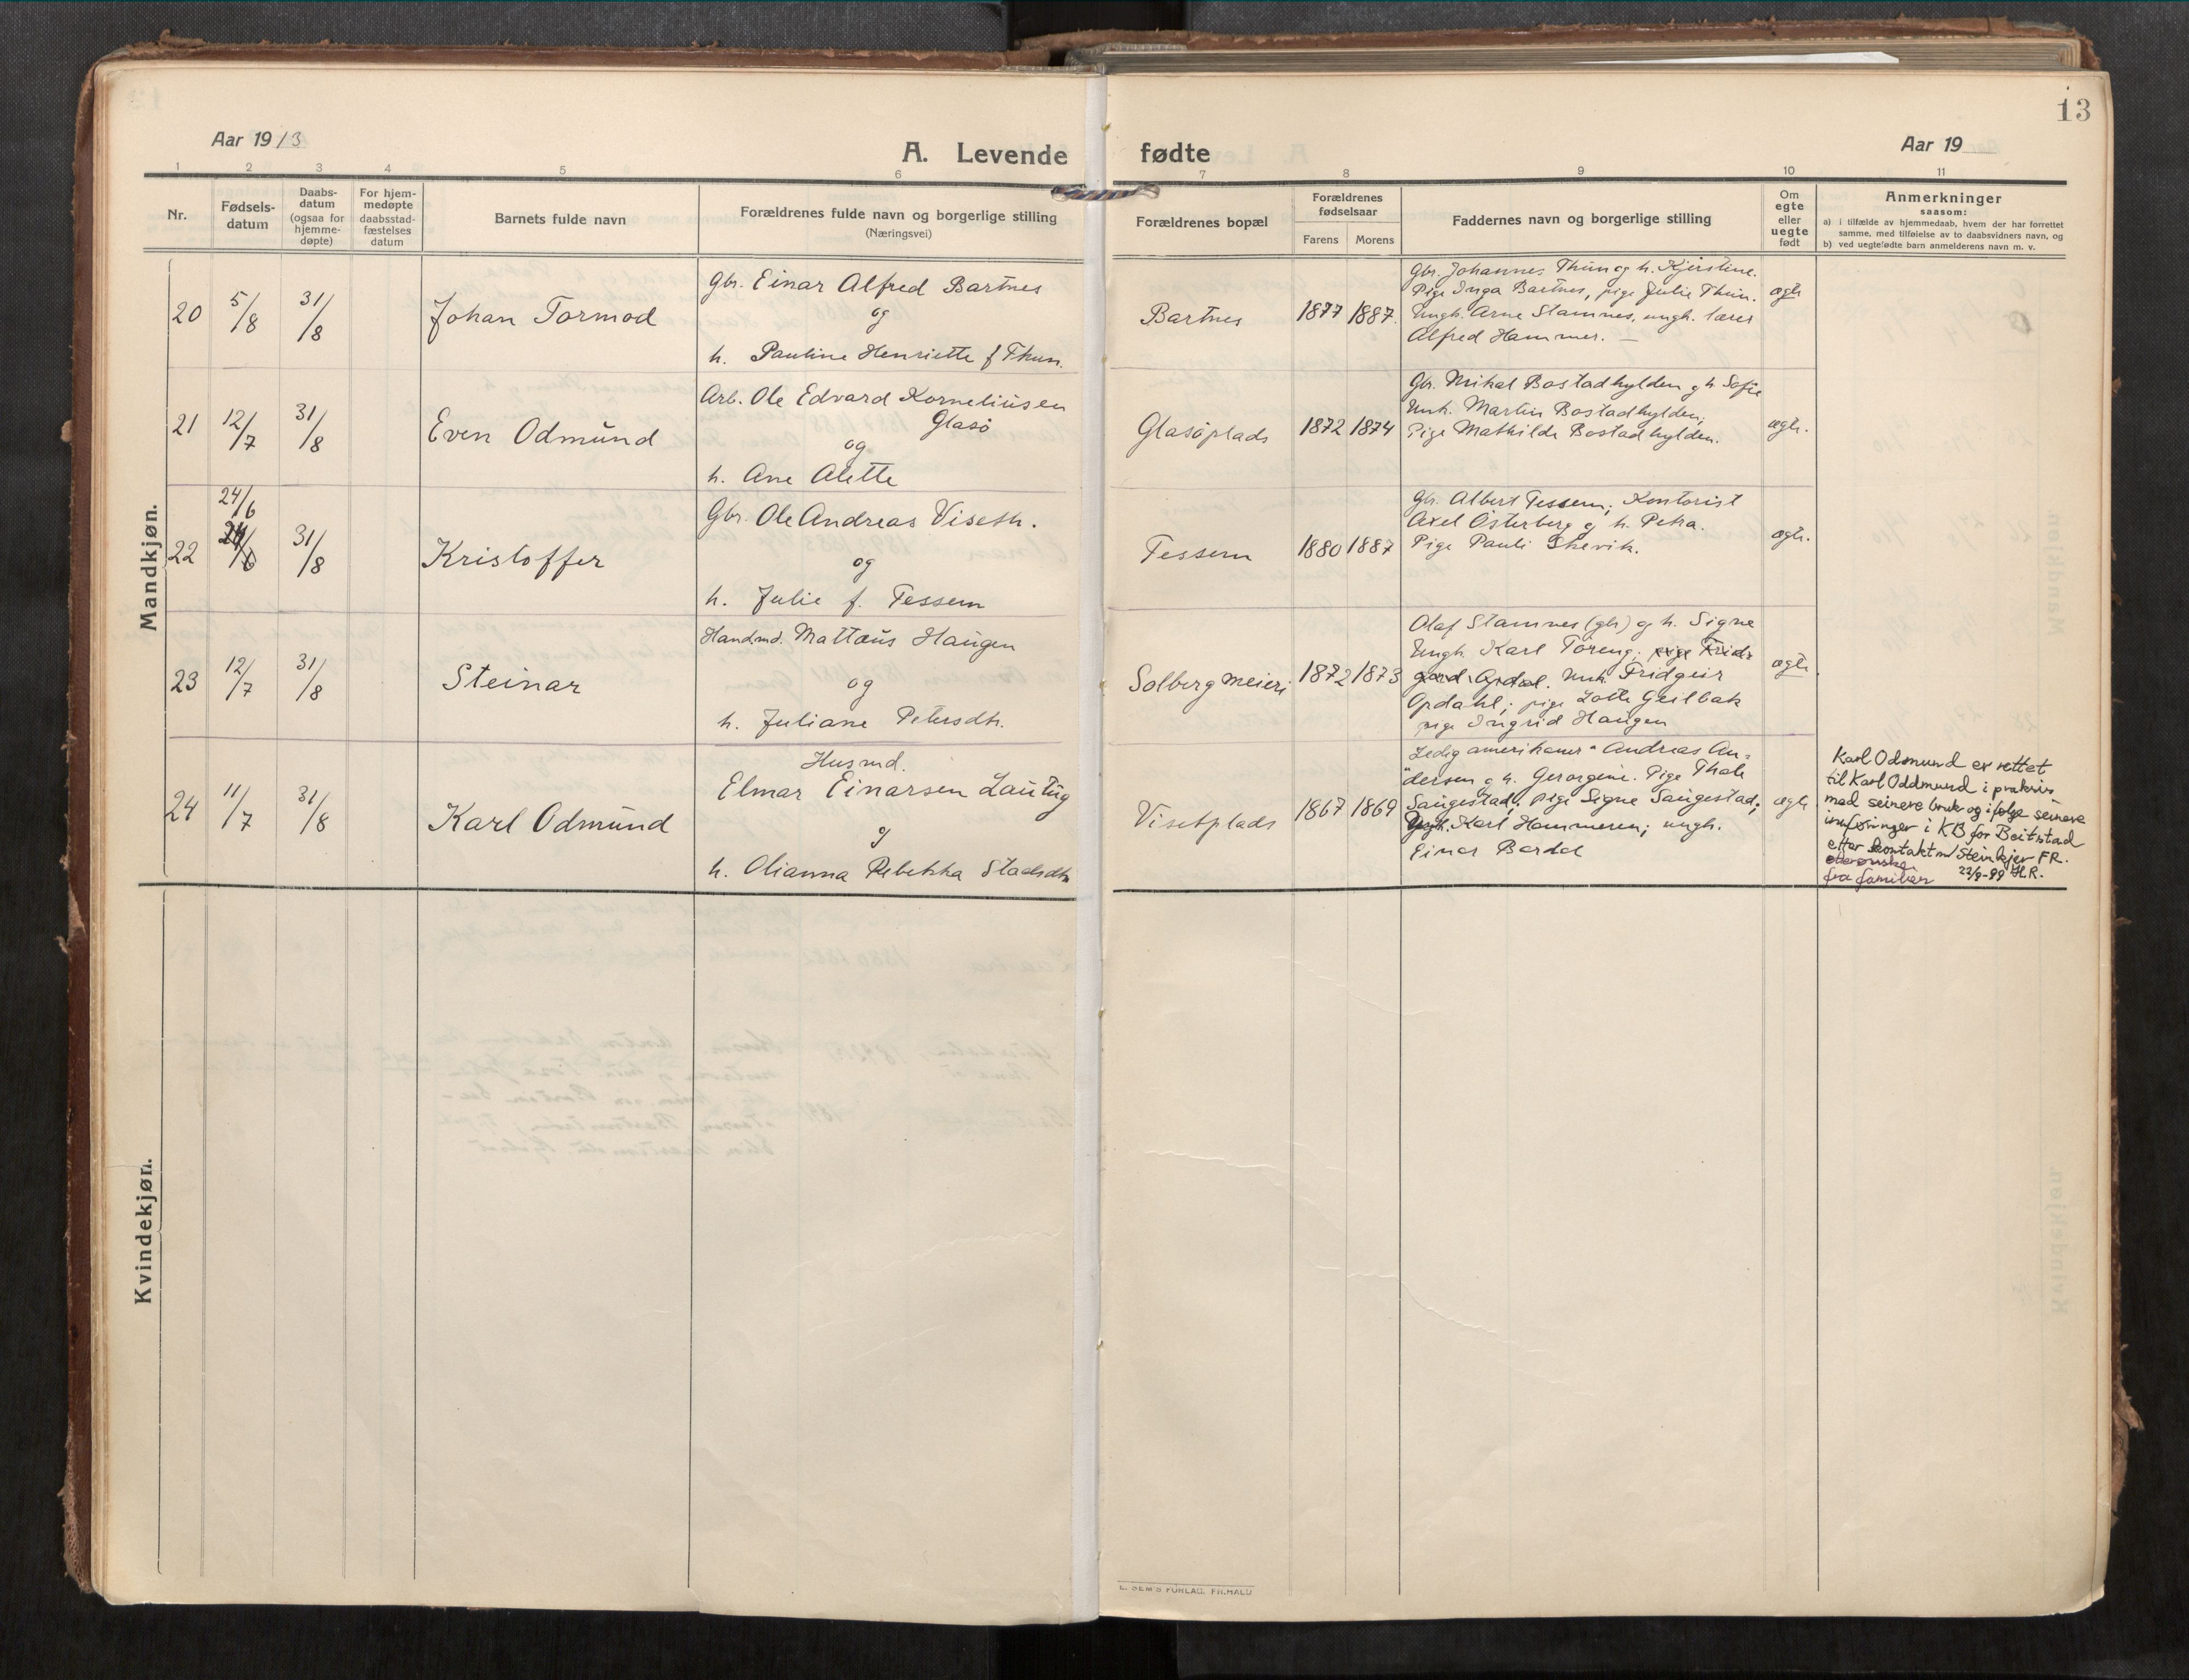 13
Aar 1913
A. Levende fødte
Aar 19
1 2 3 4 5 6 7 8 9 10 11
Nr.
Fødsels-
datum
Daabs-
datum
(ogsaa for
hjemme-
døpte)
For hjem-
medøpte
daabsstad-
fæstelses
datum
Barnets fulde navn
Forældrenes fulde navn og borgerlige stilling
(Næringsvei)
Forældrenes bopæl
Forældrenes
fødselsaar
Farens Morens
Faddernes navn og borgerlige stilling
Om
egte
eller
uegte
født
Anmerkninger
saasom:
a) i tilfælde av hjemmedaab, hvem der har forrettet
samme, med tilføielse av to daabsvidners navn, og
b) ved uegtefødte barn anmelderens navn m. v.
Mandkjøn.
20
5/8
31/8
Johan Tormod
Gbr. Einar Alfred Bartnes
og
h. Pauline Henriette f Thun.
Bartnes
1877 1887.
Gbr. Johannes Thun og h. Kjerstine.
Pige Inga Bartnes, pige Julie Thun.
Ungk. Arne Stamnes, ungk. lærer
Alfred Hammer. —
ægte
21
12/7
31/8
Even Odmund
Arb. Ole Edvard Korneliusen
Glasø
og
h. Ane Alette
Glasøplads
1872 1874
Gbr. Mikal Bostadhylden og h Sofie
Unk. Martin Bostadhylden;
Pige Mathilde Bostadhylden.
ægte.
22
24/6
24/6
31/8
Kristoffer
Gbr. Ole Andreas Viseth.
og
h. Julie f. Tessem
Tessem
1880 1887
Gbr. Albert Tessem; Kontorist
Axel Østerberg og h. Petra.
Pige Pauli
ægte.
23
12/7
31/8
Steinar
Handmd. Mattæus Haugen
og
h. Juliane Petersdtr.
Solberg meieri
1872 1873
Olaf Stamnes (gbr) og h. Signe
Ungk. Karl Töreng; pige Frid-
gard Opdal. Unk. Fridgeir
Opdahl; pige Lotte Geilbak
pige Ingrid Haugen
ægte
24
11/7
31/8
Karl Odmund
Husmd.
Elmar Einarsen Lautug
og
h. Olianna Rebekka
Visetplads
1867 1869
Ledig "amerikaner" Andreas An-
dersen og h. Gerorgine. Pige Thale
Saugestad; pige Signe Saugestad;
Ungk. Karl Hammeren; ungk.
Einar Bardal
ægte
Karl Odmund er rettet
til Karl Oddmund i praksis
med seinere bruk og ifølge seinere
innføringer i KB for Beitstad
etter kontakt m/ Steinkjer FR.
etter ønske
fra familien 23/9-99 H.R.
Kvindekjøn.
E. SEM'S FORLAG. FR.HALD